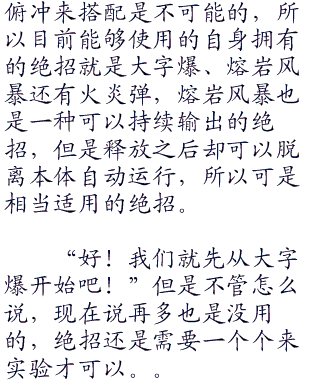 俯冲来搭配是不可能的，所
以目前能够使用的自身拥有
的绝招就是大字爆、熔岩风
暴还有火炎弹，熔岩风暴也
是一种可以持续输出的绝
招，但是释放之后却可以脱
离本体自动运行，所以可是
相当适用的绝招。
“好！我们就先从大字
爆开始吧！”但是不管怎么
说，现在说再多也是没用
的，绝招还是需要一个个来
实验才可以。。